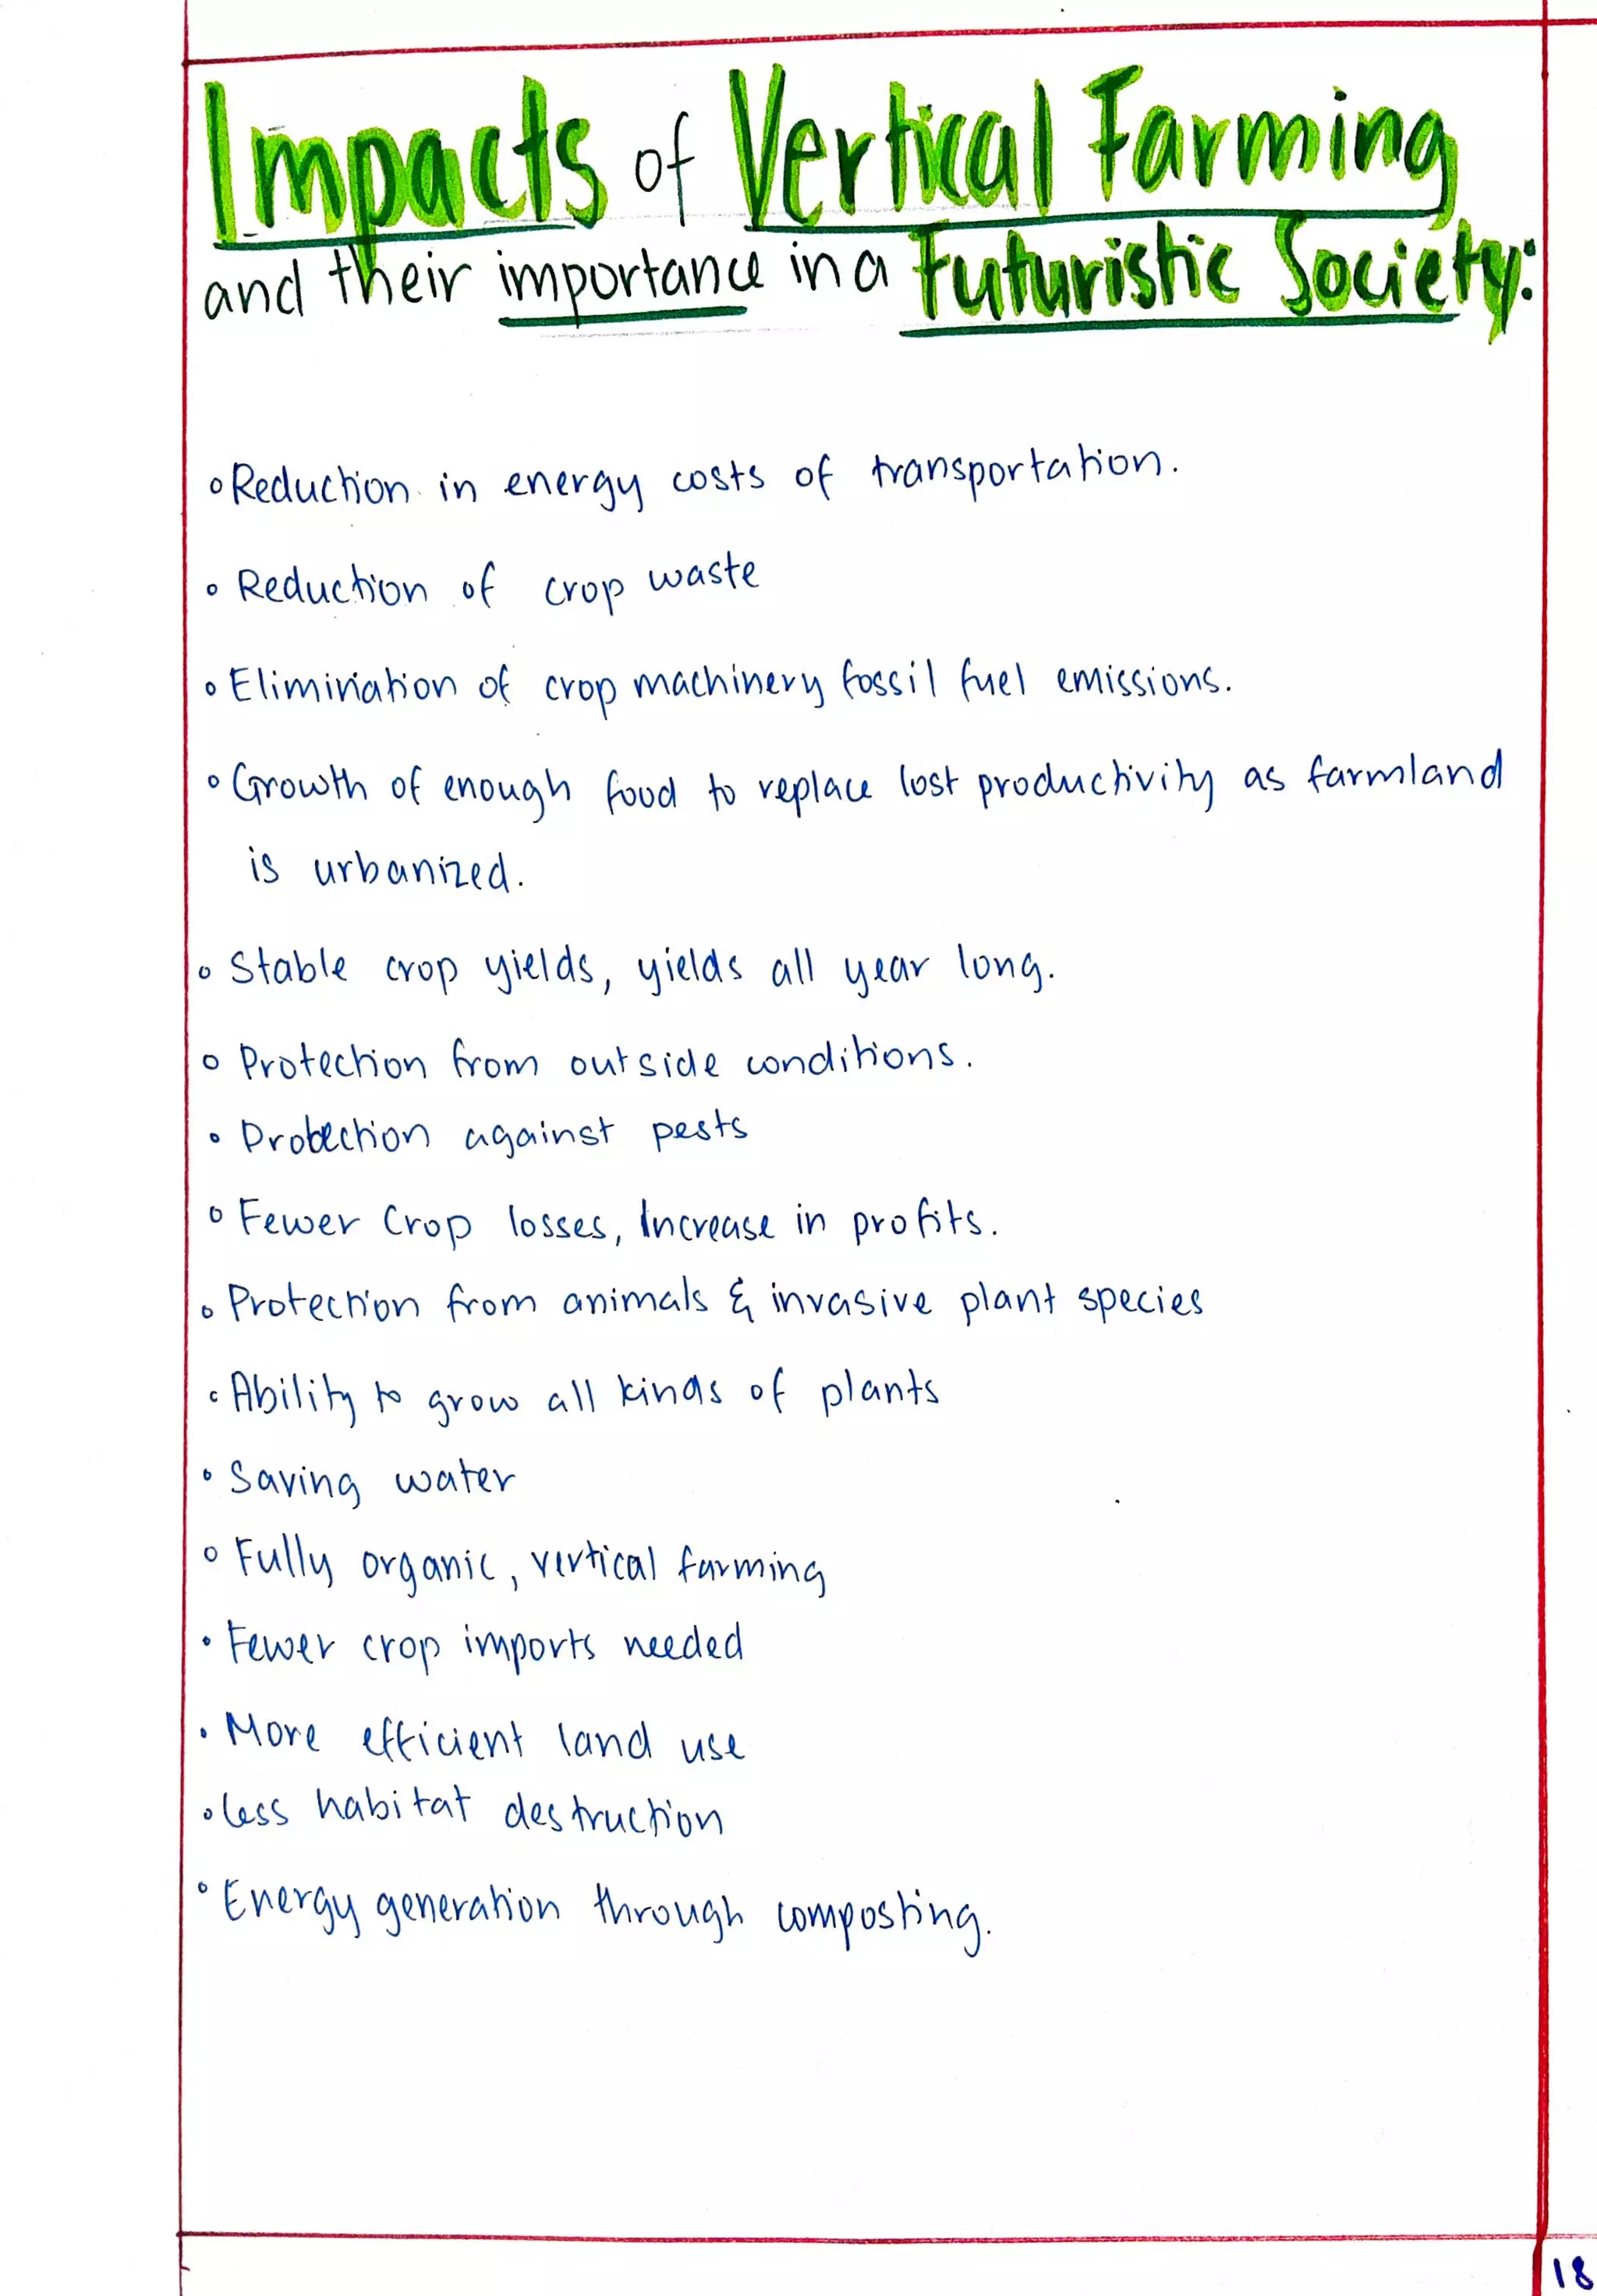 Impacts of Vertical Farming
and their importance in a Futuristic Society:
o Reduction in energy costs of transportation.
o Reduction of crop waste
o Elimination of crop machinery fossil fuel emissions.
o Growth of enough food to replace lost productivity as farmland
is urbanized.
o Stable crop yields, yields all year long.
o Protection from outside conditions.
o Protection against pests
o Fewer Crop losses, Increase in profits.
o Protection from animals & invasive plant species
o Ability to grow all kinds of plants
o Saving water
o Fully organic, vertical farming
• Fewer crop imports needed
• More efficient land use
o less habitat destruction
o Energy generation through composting.
18